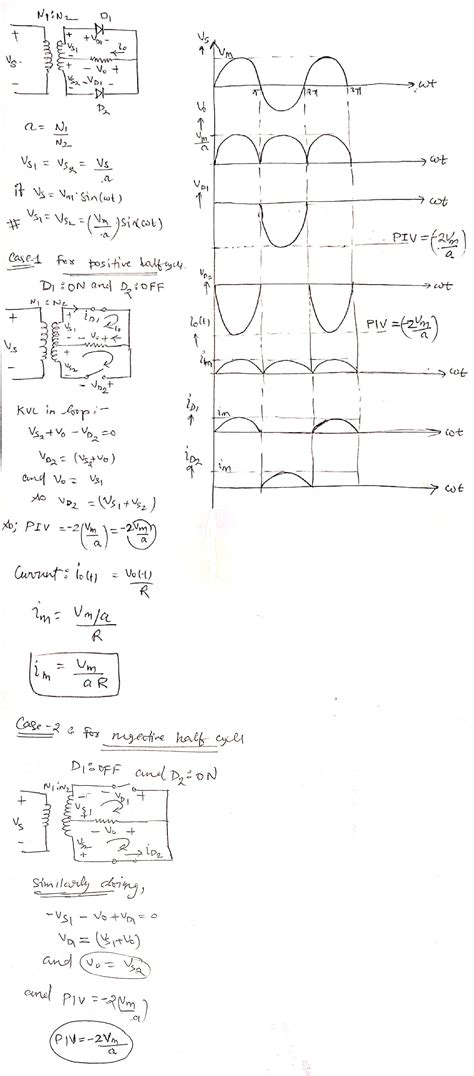 N1 : N2
D1
+ VD1 -
+
VS
-
+
VS1
-
- V0 +
i0
+
VS2
-
- VD2 +
D2
a = N1/N2
VS1 = VS2 = VS/a
if VS = Vm sin(ωt)
# VS1 = VS2 = (Vm/a) sin(ωt)
Case-1 For positive half cycle
D1 : ON and D2 : OFF
N1 : N2
iD1
+
VS
-
+
VS1
-
- V0 +
i0
+
VS2
-
- VD2 +
KVL in loop :-
VS2 + V0 - VD2 = 0
VD2 = (VS2 + V0)
and V0 = VS1
so VD2 = (VS1 + VS2)
so; PIV = -2(Vm/a) = -2Vm/a
Current : i0(t) = V0(t)/R
im = Vm/a / R
im = Vm / aR
Case-2 : For negective half cycle
D1 : OFF and D2 : ON
N1 : N2
- VD1 +
+
VS
-
-
VS1
+
- V0 +
-
VS2
+
iD2
Similarly doing,
-VS1 - V0 + VD1 = 0
VD1 = (VS1 + V0)
and V0 = VS2
and PIV = -2(Vm/a)
PIV = -2Vm/a
VS
Vm
π 2π 3π
ωt
V0
Vm/a
ωt
VD1
ωt
PIV = (-2Vm/a)
VD2
ωt
PIV = (-2Vm/a)
i0(t)
im
ωt
iD1
im
ωt
iD2
im
ωt